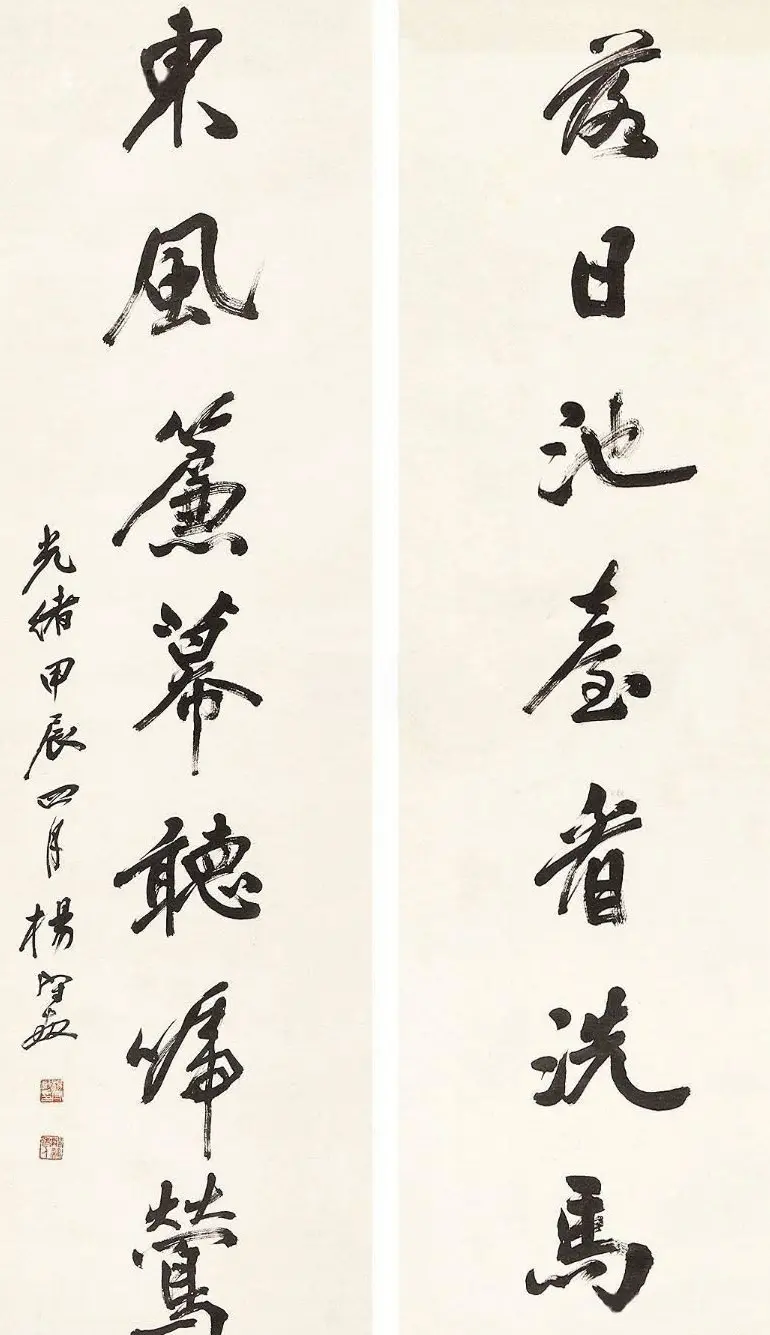 落日池臺看洗馬
東風簾幕聽啼鶯
光緒甲辰四月楊守敬